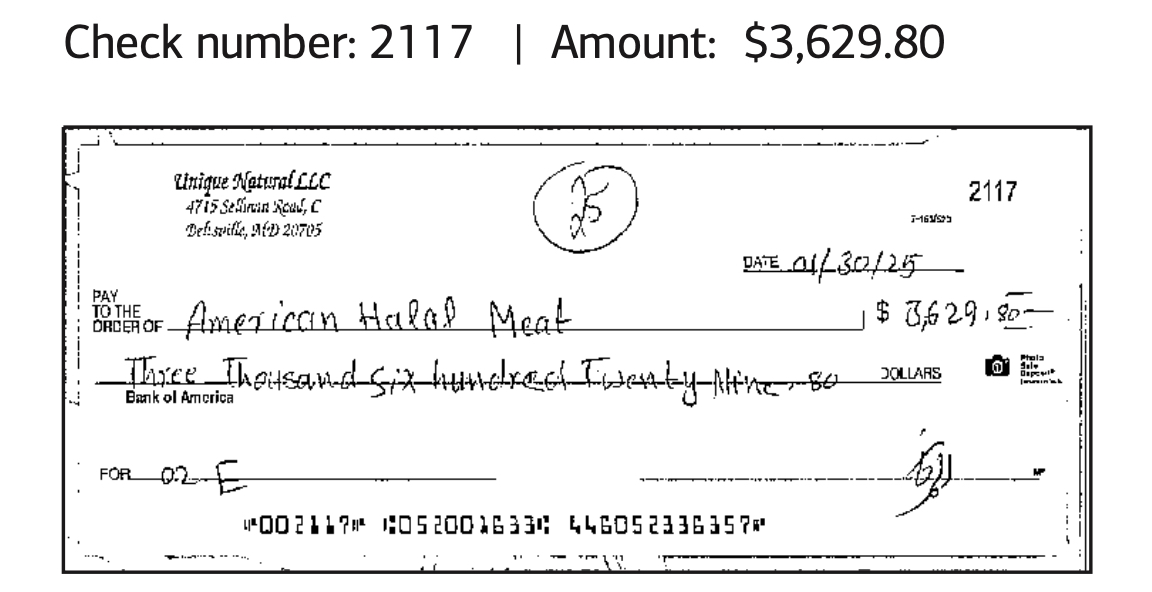 Check number: 2117 | Amount: $3,629.80
Unique Natural LLC
4715 Sellman Road, C
Beltsville, MD 20705
25
2117
7-163/520
DATE 01/30/25
PAY
TO THE
ORDER OF American Halal Meat $ 3,629.80
Three Thousand Six hundred Twenty Nine. 80 DOLLARS
Photo
Safe
Deposit
Bank of America
FOR 02 E
MP
⑈002117⑈ ⑆052001633⑆ 446052336357⑈